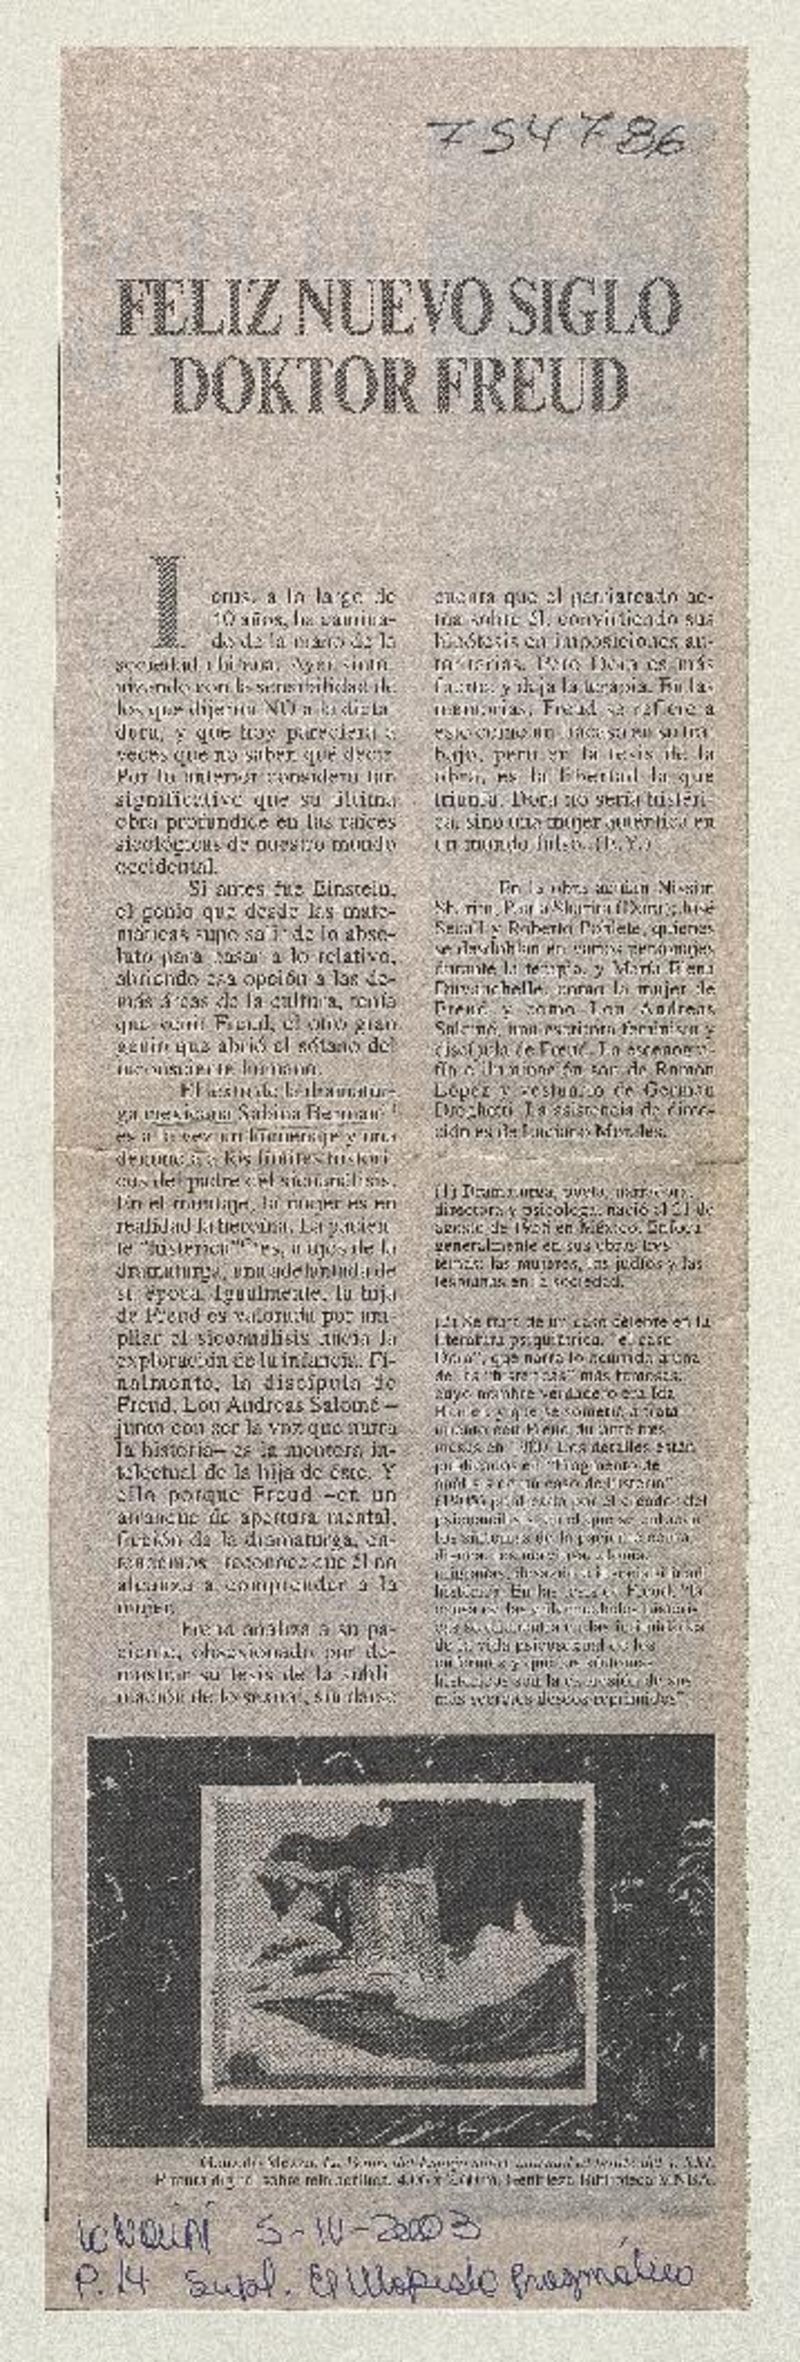 754786
FELIZ NUEVO SIGLO
DOKTOR FREUD
Ictus, a lo largo de
10 años, ha camina-
do de la mano de la
sociedad chilena. Ayer sinto-
nizando con la sensibilidad de
los que dijeron NO a la dicta-
dura, y que hoy pareciera a
veces que no saben qué decir.
Por lo anterior considero tan
significativo que su última
obra profundice en las raíces
sicológicas de nuestro mundo
occidental.
Si antes fue Einstein,
el genio que desde las mate-
máticas supo salir de lo abso-
luto para pasar a lo relativo,
abriendo esa opción a las de-
más áreas de la cultura, tenía
que venir Freud, el otro gran
genio que abrió el sótano del
inconsciente humano.
El texto de la dramatur-
ga mexicana Sabina Berman
es a la vez un homenaje y una
denuncia a los límites históri-
cos del padre del sicoanálisis.
En el montaje, la mujer es en
realidad la heroína. La pacien-
te "histérica" es, a ojos de la
dramaturga, una adelantada de
su época. Igualmente, la hija
de Freud es valorada por am-
pliar el sicoanálisis hacia la
exploración de la infancia. Fi-
nalmente, la discípula de
Freud, Lou Andreas Salomé –
junto con ser la voz que narra
la historia– es la mentora in-
telectual de la hija de éste. Y
ello porque Freud –en un
arranque de apertura mental,
ficción de la dramaturga, en-
tendemos– reconoce que él no
alcanza a comprender a la
mujer.
Freud analiza a su pa-
ciente, obsesionado por de-
mostrar su tesis de la subli-
mación de lo sexual, sin darse
cuenta que el patriarcado ac-
túa sobre él, convirtiendo sus
hipótesis en imposiciones au-
toritarias. Pero Dora es más
fuerte y deja la terapia. En las
memorias, Freud se refiere a
esto como un fracaso en su tra-
bajo, pero en la tesis de la
obra, es la libertad la que
triunfa. Dora no sería histéri-
ca, sino una mujer auténtica en
un mundo falso.
En la obra actúan Nissim
Sharim, Paula Sharim (Dora), José
Secall y Roberto Poblete, quienes
se desdoblan en varios personajes
durante la terapia, y María Elena
Duvauchelle, como la mujer de
Freud y como Lou Andreas
Salomé, una escritora feminista y
discípula de Freud. La escenogra-
fía e iluminación son de Ramón
López y vestuario de Germán
Droghetti. La asistencia de direc-
ción es de Luciano Morales.
(1) Dramaturga, poeta, narradora,
directora y psicóloga, nació el 21 de
agosto de 1956 en México. Enfoca
generalmente en sus obras tres
temas: las mujeres, los judíos y las
lesbianas en la sociedad.
(2) Se trata de un caso célebre en la
literatura psiquiátrica, "el caso
Dora", que narra lo ocurrido a una
de las "histéricas" más famosas,
cuyo nombre verdadero era Ida
y que se sometió a trata-
miento con Freud durante tres
meses en 1900. Los detalles están
publicados en "Fragmento de
análisis de un caso de histeria"
histérico. En las tesis de Freud, "la
de la vida psicosexual de los
enfermos y que los síntomas
histéricos son la expresión de sus
más secretos deseos reprimidos".
5-IV-2003
P. 14 Supl. El Utopista Pragmático